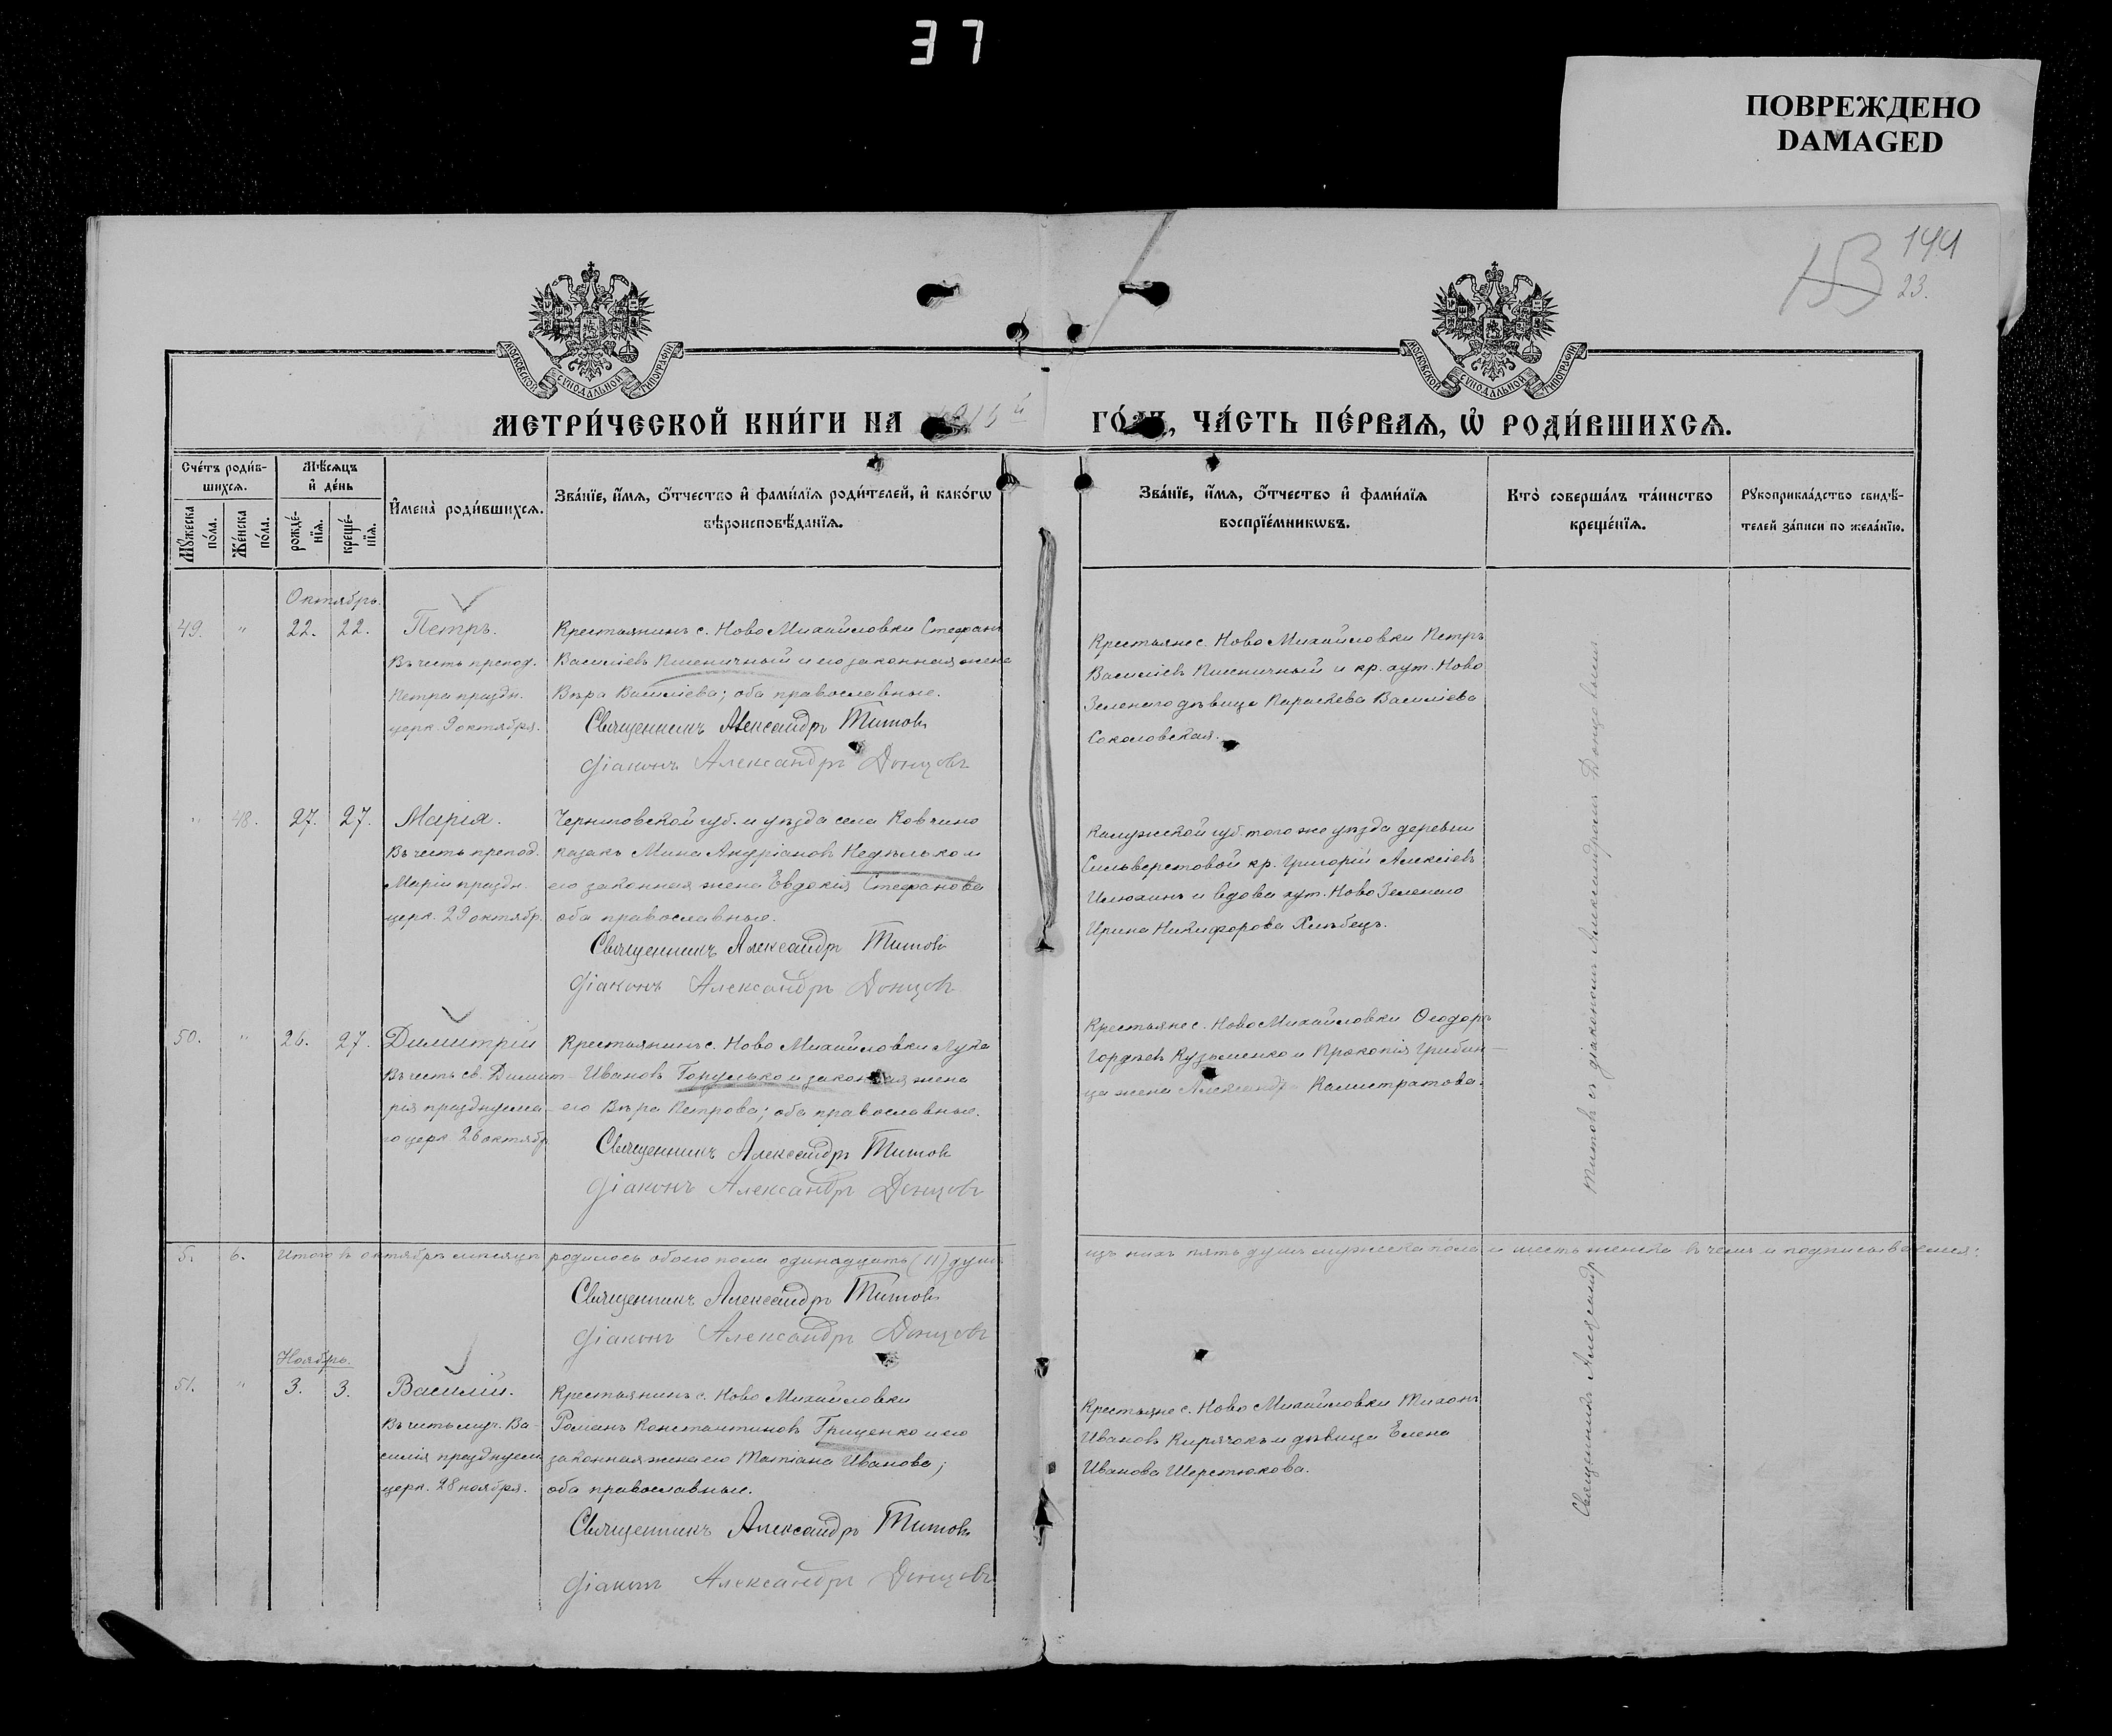 37
ПОВРЕЖДЕНО
DAMAGED
144
23.
МОСКОВСКОЙ СУНОДАЛЬНОЙ ТИПОГРАФІИ
МОСКОВСКОЙ СУНОДАЛЬНОЙ ТИПОГРАФІИ
МЕТРИ́ЧЕСКОЙ КНИ́ГИ НА
ГО́ДЪ, ЧА́СТЬ ПЕ́РВАЯ, Ѡ҆ РОДИ́ВШИХСЯ.
Сче́тъ роди́в-
шихся.
Мѣ́сяцъ
и҆ де́нь
Мꙋ́жеска по́ла.
Же́нска по́ла.
рожде́-
нїя.
креще́-
нїя.
И҆мена̀ роди́вшихся.
Зва́нїе, и҆́мя, ѻ҆́тчество и҆ фами́лїя роди́телей, и҆ како́гѡ
вѣроисповѣ́данїя.
Зва́нїе, и҆́мя, ѻ҆́тчество и҆ фами́лїя
воспрїе́мникѡвъ.
Кто̀ соверша́лъ та́инство
креще́нїя.
Рꙋкоприкла́дство свидѣ́-
телей за́писи по жела́нїю.
Октябрь.
49. " 22. 22. Петръ.
Въ честь препод.
Петра праздн.
церк. 9 октября.
Крестьянинъ с. Ново Михайловки Стефанъ
Василіевъ Пшеничный и его законная жена
Вѣра Василіева; оба православные.
Священникъ Александръ Титовъ
Діаконъ Александръ Донцовъ
Крестьяне с. Ново Михайловки Петръ
Василіевъ Пшеничный и кр. хут. Ново
Зеленаго дѣвица Параскева Василіева
Соколовская.
" 48. 27. 27. Марія.
Въ честь препод.
Маріи праздн.
церк. 29 октябр.
Черниговской губ. и уѣзда села Ковчино
казакъ Мина Андріановъ Недѣлько и
его законная жена Евдокія Стефанова
оба православные.
Священникъ Александръ Титовъ
Діаконъ Александръ Донцовъ
Калужской губ. того же уѣзда деревни
Сильверстовой кр. Григорій Алексіевъ
Илюхинъ и вдова хут. Ново Зеленаго
Ирина Никифорова Хлѣбецъ.
50. " 26. 27. Димитрій
Въ честь св. Димит-
рія празднуема-
го церк. 26 октябр
Крестьянинъ с. Ново Михайловки Лука
Ивановъ Горулько и законная жена
его Вѣра Петрова; оба православные.
Священникъ Александръ Титовъ
Діаконъ Александръ Донцовъ
Крестьяне с. Ново Михайловки Ѳеодоръ
Гордѣевъ Кузьменко и Прокопія Грибин-
ца жена Александра Калистратова.
5. 6. Итого въ октябрѣ мѣсяцѣ родилось обоего пола одинадцать (11) душъ
изъ нихъ пять душъ мужеска пола и шесть женска въ чемъ и подписываемся:
Священникъ Александръ Титовъ
Діаконъ Александръ Донцовъ
Ноябрь.
51. " 3. 3. Василій.
Въ честь муч. Ва-
силія празднуем.
церк. 28 ноября.
Крестьянинъ с. Ново Михайловки
Романъ Константиновъ Гриценко и его
законная жена его Татіана Иванова;
оба православные.
Священникъ Александръ Титовъ
Діаконъ Александръ Донцовъ
Крестьяне с. Ново Михайловки Тихонъ
Ивановъ Кирячокъ и дѣвица Елена
Иванова Шерстюкова.
Священникъ Александръ Титовъ съ діакономъ Александромъ Донцовымъ